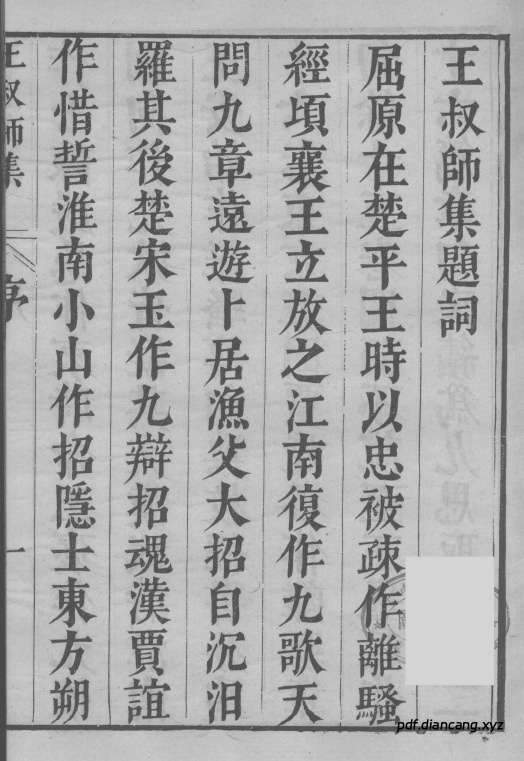 王叔師集題詞
屈原在楚平王時以忠被疎作離騷
經頃襄王立放之江南復作九歌天
問九章遠遊卜居漁父大招自沉汨
羅其後楚宋玉作九辯招魂漢賈誼
作惜誓淮南小山作招隱士東方朔
王叔師集 序 一
pdf.diancang.xyz